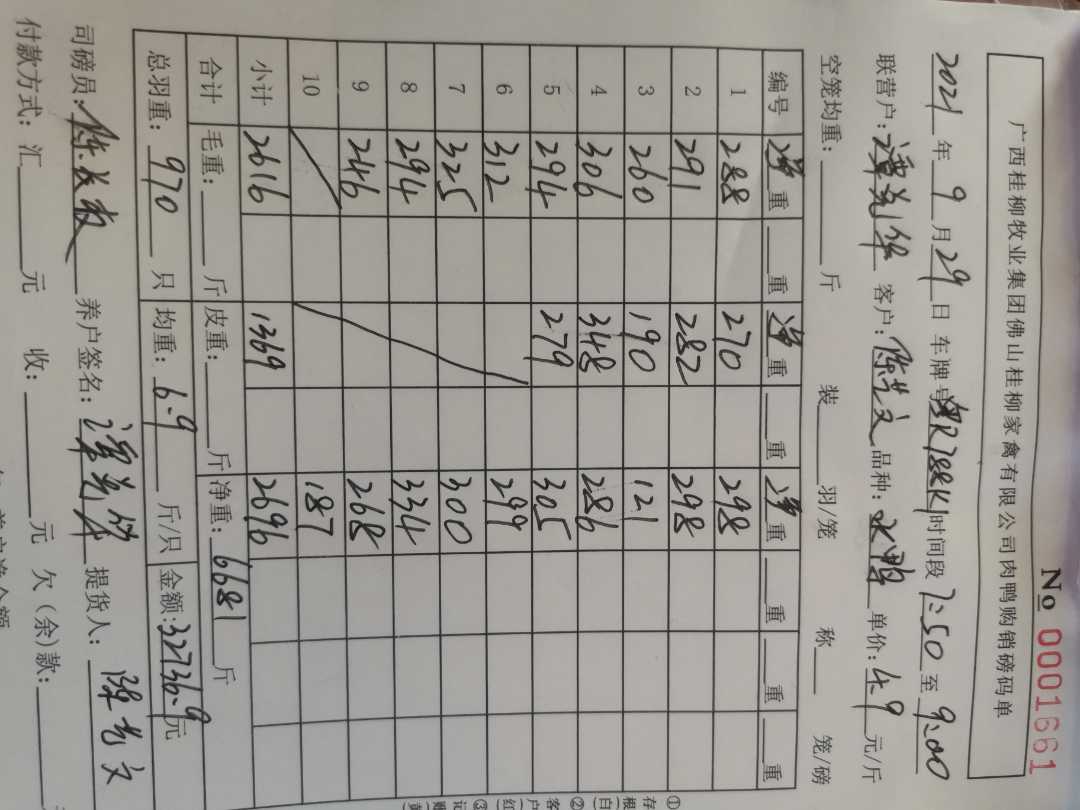 No 0001661
广西桂柳牧业集团佛山桂柳家禽有限公司肉鸭购销磅码单
2021年9月29日 车牌号 时间段7:50至9:00
联营户: 客户:陈艺文 品种:水鸭 单价:4.9元/斤
空笼均重: 斤 装 羽/笼 称 笼/磅
编号 净重 重 净重 重 净重 重 重 重
1 288 270 298
2 291 282 298
3 260 190 121
4 306 348 286
5 294 279 305
6 312 299
7 325 300
8 294 334
9 246 268
10 187
小计 2616 1369 2696
合计 毛重: 斤 皮重: 斤 净重:6681斤
总羽重:970只 均重:6.9斤/只 金额:32736.9元
司磅员: 养户签名: 提货人:陈艺文
付款方式:汇 元 收: 元 欠(余)款: